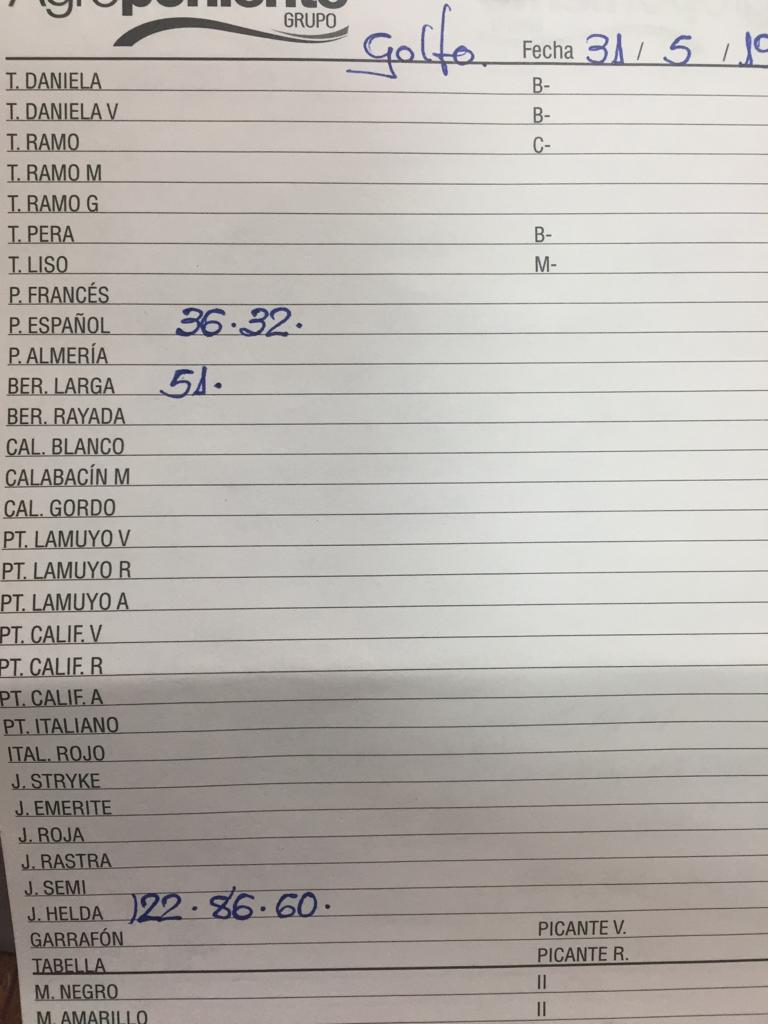 Agroponiente
GRUPO
Golfo. Fecha 31 / 5 / 19
T. DANIELA B-
T. DANIELA V B-
T. RAMO C-
T. RAMO M
T. RAMO G
T. PERA B-
T. LISO M-
P. FRANCÉS
P. ESPAÑOL 36.32.
P. ALMERÍA
BER. LARGA 51.
BER. RAYADA
CAL. BLANCO
CALABACÍN M
CAL. GORDO
PT. LAMUYO V
PT. LAMUYO R
PT. LAMUYO A
PT. CALIF. V
PT. CALIF. R
PT. CALIF. A
PT. ITALIANO
ITAL. ROJO
J. STRYKE
J. EMERITE
J. ROJA
J. RASTRA
J. SEMI
J. HELDA 122.86.60.
GARRAFÓN PICANTE V.
TABELLA PICANTE R.
M. NEGRO II
M. AMARILLO II